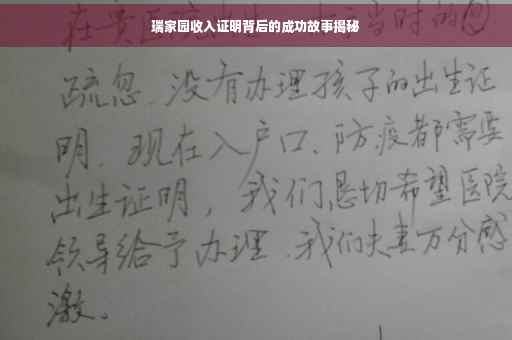 瑞家园收入证明背后的成功故事揭秘
在贵 当时的
疏忽.没有办理孩子的出生证
明.现在入户口、防疫都需要
出生证明，我们恳切希望医院
领导给予办理.我们夫妻万分感
激。